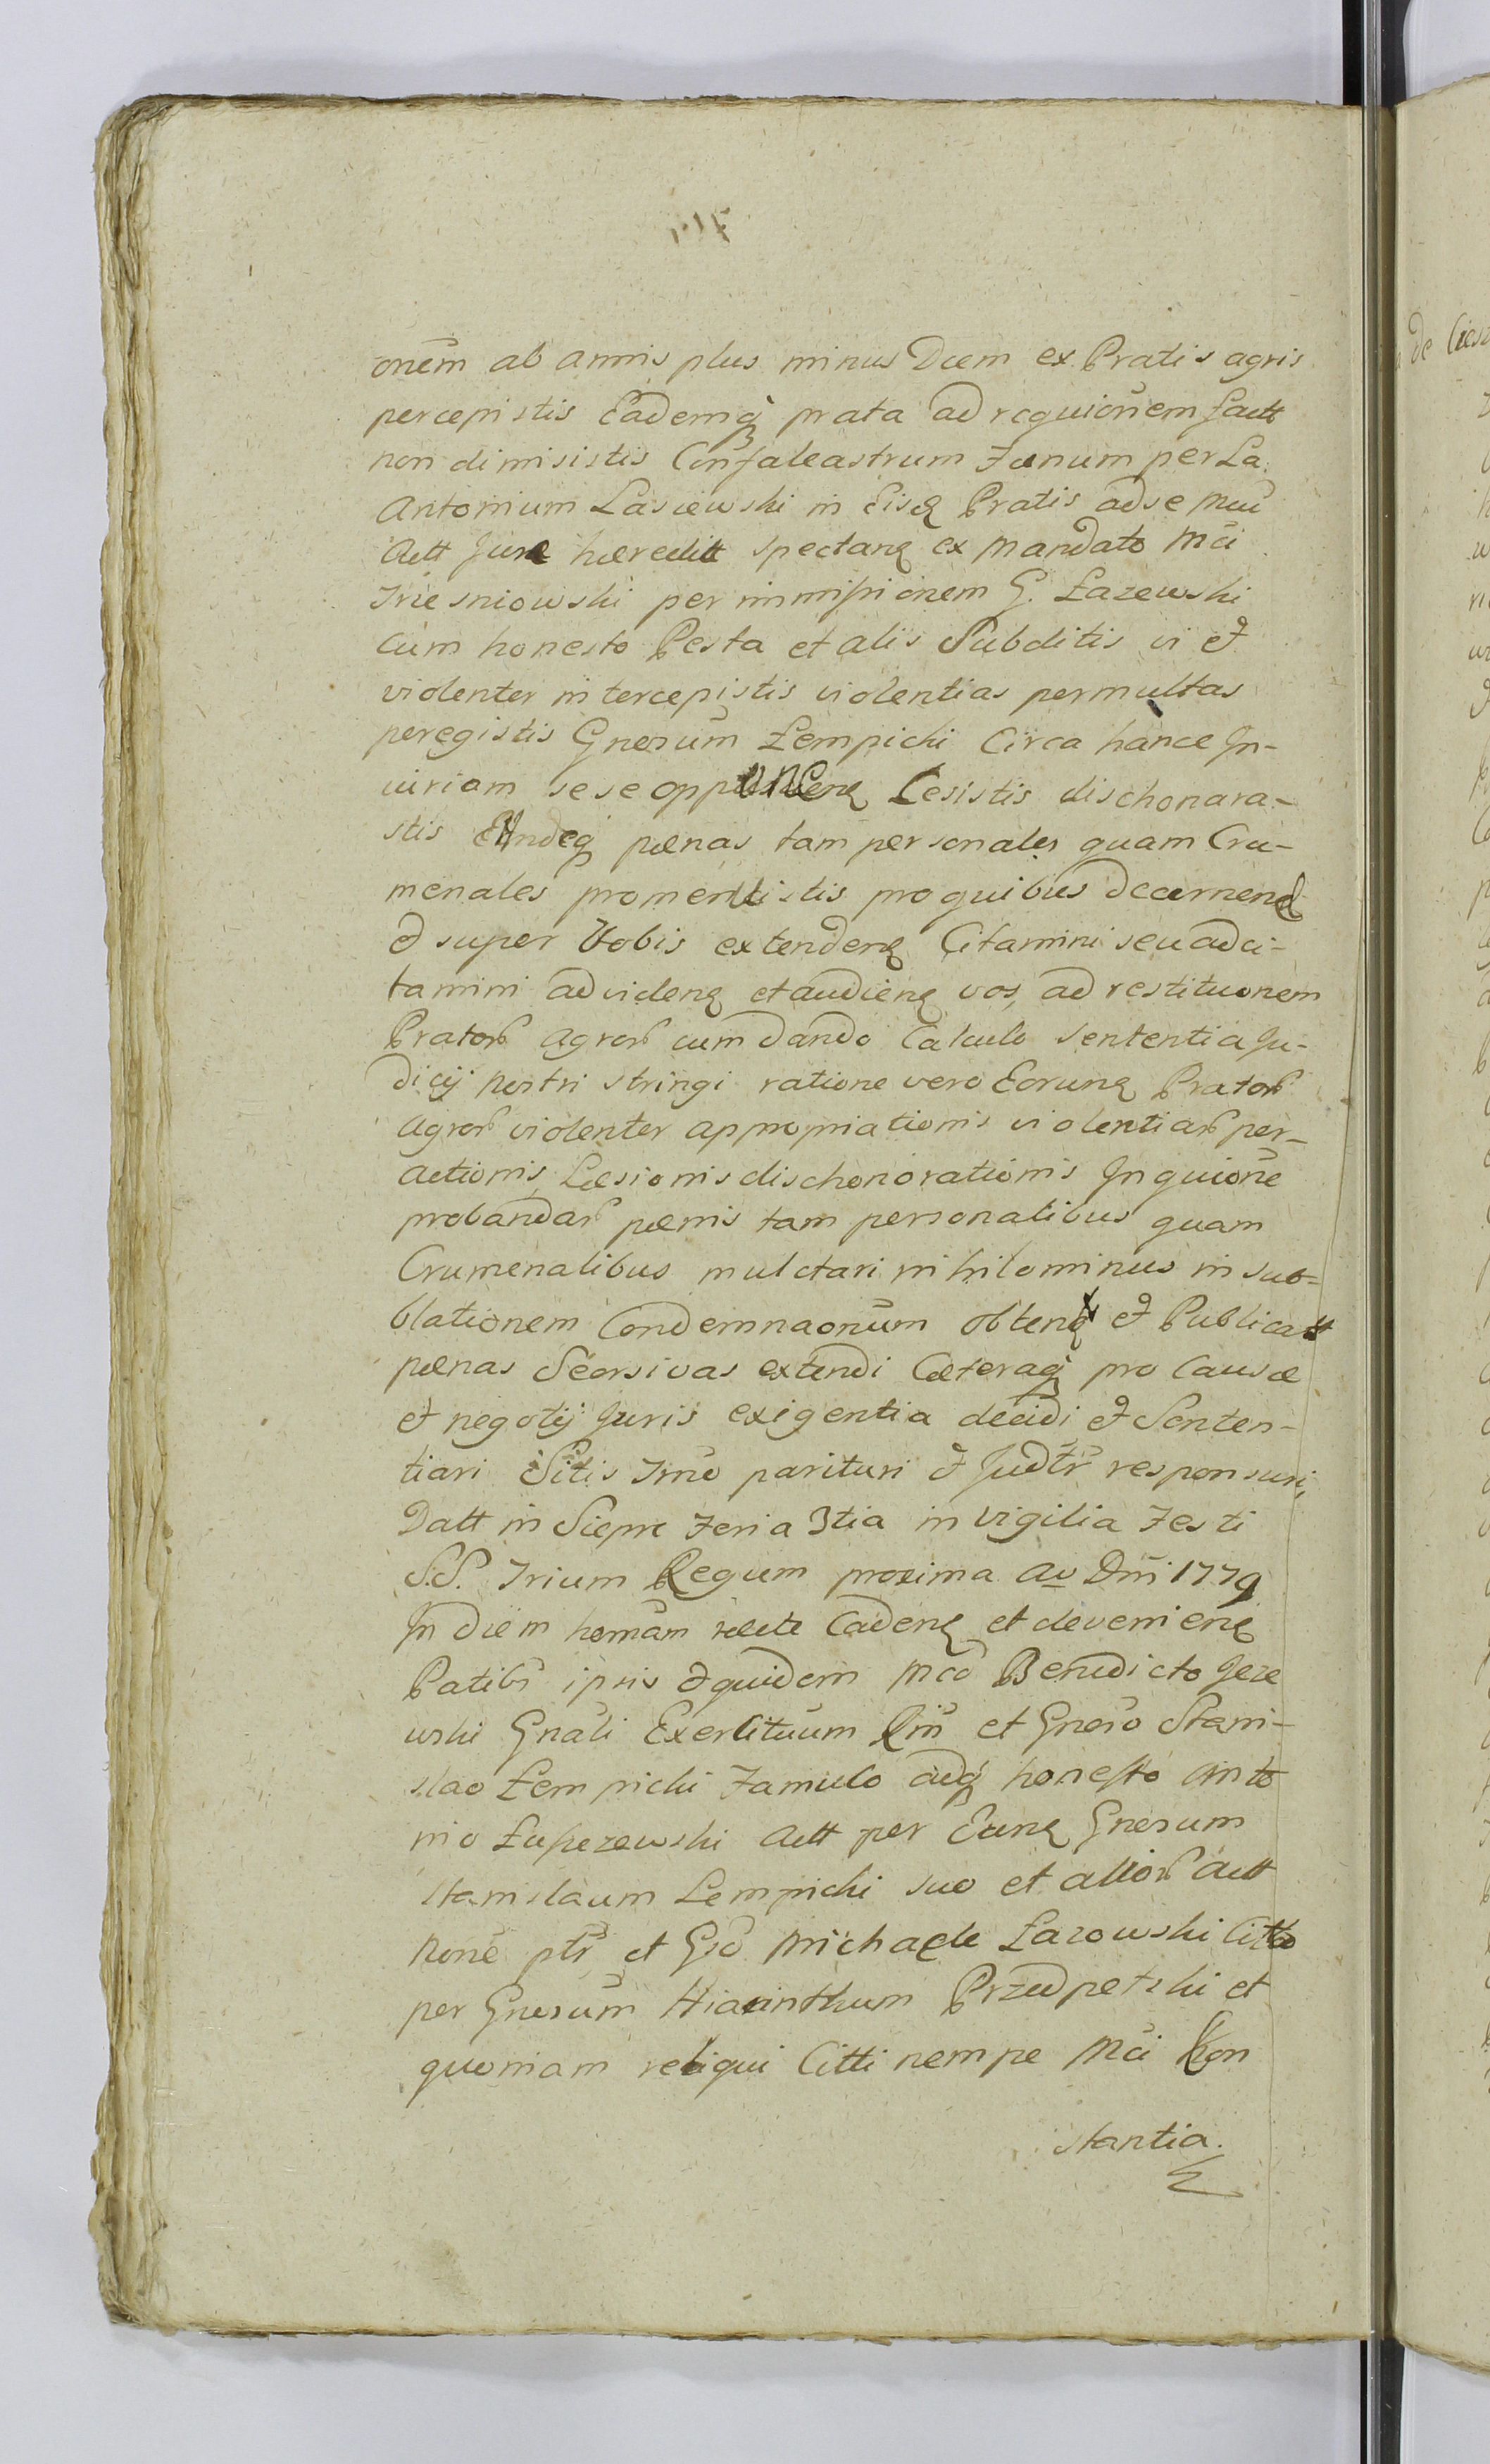 onem ab annis plus minus Duem ex Pratis agris
percepistis Eademq prata ad requionem fact
non dimisistis Confaleastrum Fænum per La.
Antonium Lasiewski in Eisq Pratis ad se
Actt Jure hæreditt spectanq ex Mandato Mci
Trzesniowski per immissionem G. Łazewski
Cum honesto Pesta et aliis Subditis vi et
violenter intercepistis violentias permultas
peregistis Gnerosum Łempicki Circa hance In-
iuriam sese opponenq Lesistis dischonara-
stis Eundeq pænas tam personales quam Cru-
menales promeruistis pro quibus decernenq
et super Vobis extendenq Citamini seu adci-
tamini ad videnq et audienq vos, ad restituonem
Prator agror cum dando Calculo sententia Ju-
dicij nostri stringi ratione vero Eorunq Prator
Agror violenter appropriationis violentiar per-
actionis, Læsionis dischonorationis Inquione
probandar pænis tam personalibus quam
Crumenalibus mulctari nihilominus in sub-
blationem Condemnaonum obtenq et Publicatt
pænas Seorsivas extendi Cæteraq pro Causæ
et negotij Juris exigentia decidi et Senten-
tiari Sitis Trno parituri et Judtr responsuri,
Datt in Sierpc Feria 3tia in vigilia Festi
S.S. Trium Regum proxima Ao Dni 1779
In diem hornam relete Cadenq et devenienq
Patibs ipsis et quidem Mco Benedicto Jeze
wski Gnali Exercituum Rni et Gnoso Stani-
slao Łempicki Famulo adq honesto Anto
nio Łuszczewski Actt per Eunq Gnersum
Stanislaum Lempicki suo et alior Actt
None ptr et Gso Michaele Łazowski Citto
per Gnersum Hiacinthum Przedpełski et
quoniam reliqui Citti nempe Mci Kon
stantia.